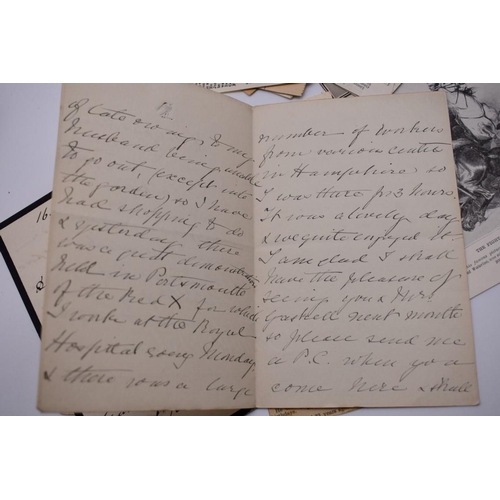 1/2
of late owing to my
Husband being unable
to go out (except into
the garden) so I have
had shopping to do
& yesterday there
was a great demonstration
held in Portsmouth
of the Red X for which
I work at the Royal
Hospital every Monday
& there was a large
number of workers
from various centres
in Hampshire, so
I was there for 3 hours.
It was a lovely day
& we quite enjoyed it.
I am glad I shall
have the pleasure of
seeing you & Mrs
Gaskell next month
so please send me
a P.C. when you
come here & shall
16